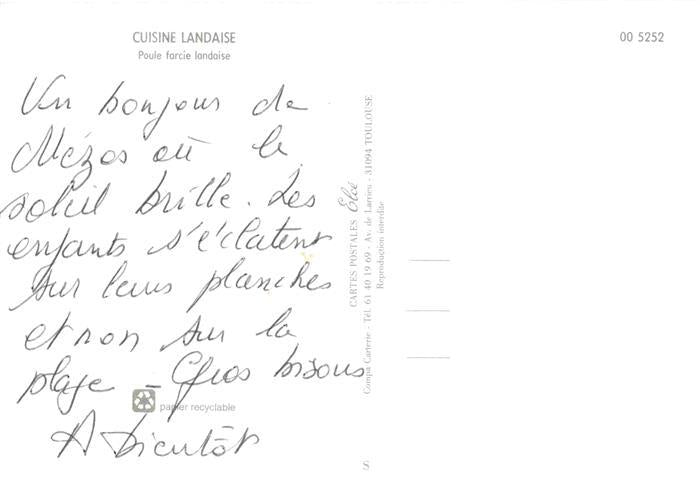 CUISINE LANDAISE
Poule farcie landaise
00 5252
Un bonjour de
Mézos où le
soleil brille. Les
enfants s'éclatent
sur leurs planches
et non sur la
plage - Gros bisous
A bientôt
papier recyclable
CARTES POSTALES Elcé
Compa Carterie - Tél. 61 40 19 69 - Av. de Larrieu - 31094 TOULOUSE
Reproduction interdite
S